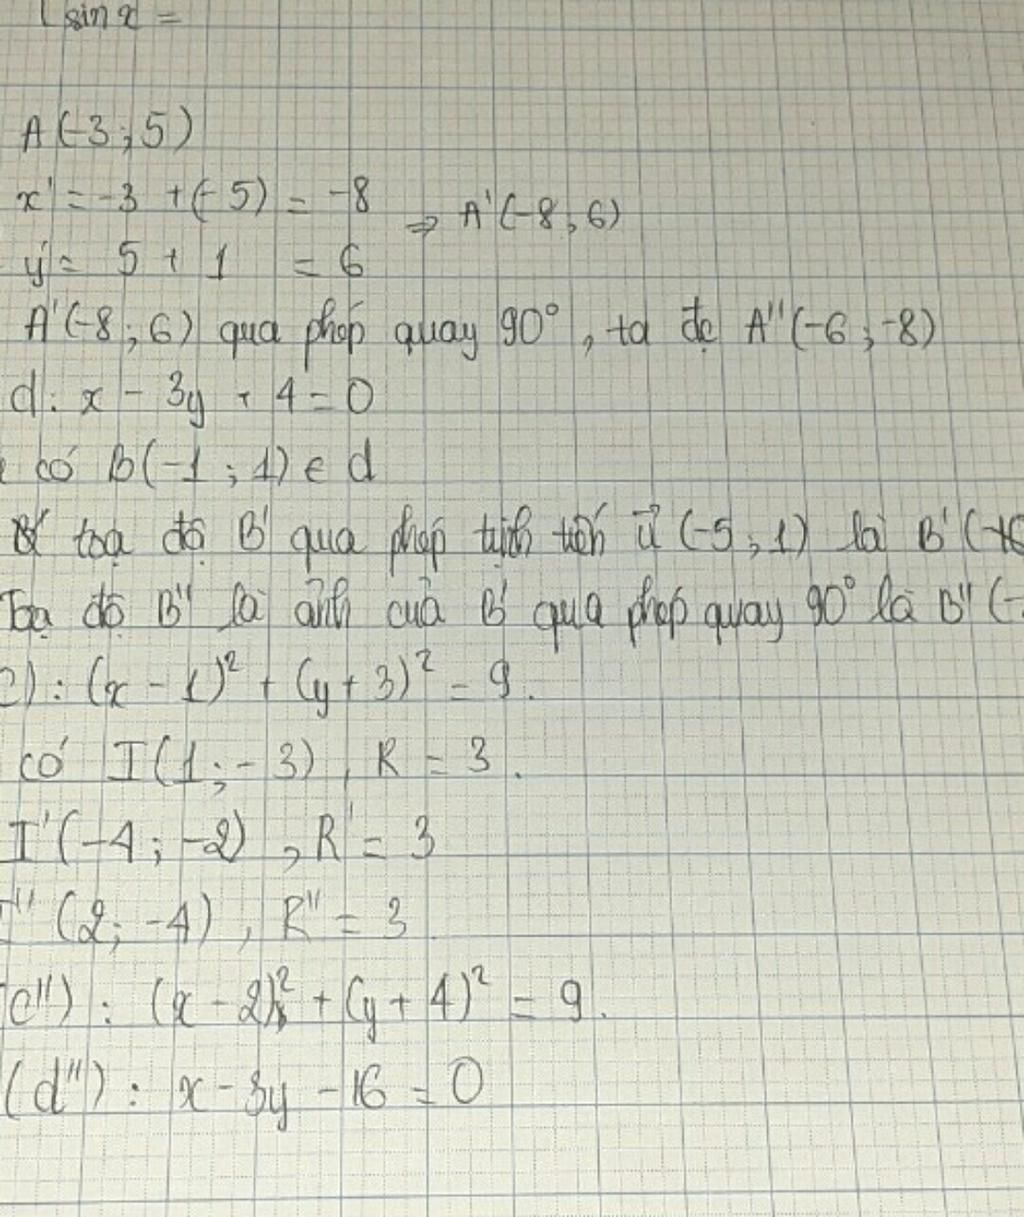 sin x =
A(-3;5)
x' = -3 + (-5) = -8
⇒ A'(-8;6)
y' = 5 + 1 = 6
A'(-8;6) qua phép quay 90°, ta đc A''(-6;-8)
d: x - 3y + 4 = 0
có B(-1;1) ∈ d
toạ độ B' qua phép tịnh tiến u⃗ (-5;1) là B'(-6
Toạ độ B'' là ảnh của B' qua phép quay 90° là B''(-
c): (x - 1)² + (y + 3)² = 9.
có I(1;-3), R = 3.
I'(-4;-2), R' = 3
I''(2;-4), R'' = 3
(c''): (x - 2)² + (y + 4)² = 9.
(d''): x - 3y - 16 = 0